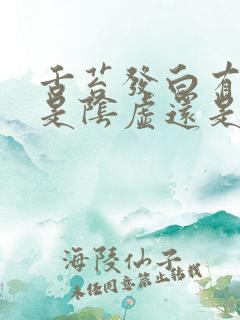 舌苔發白有
是陰虛還是
海陵仙子
未经同意禁止转载